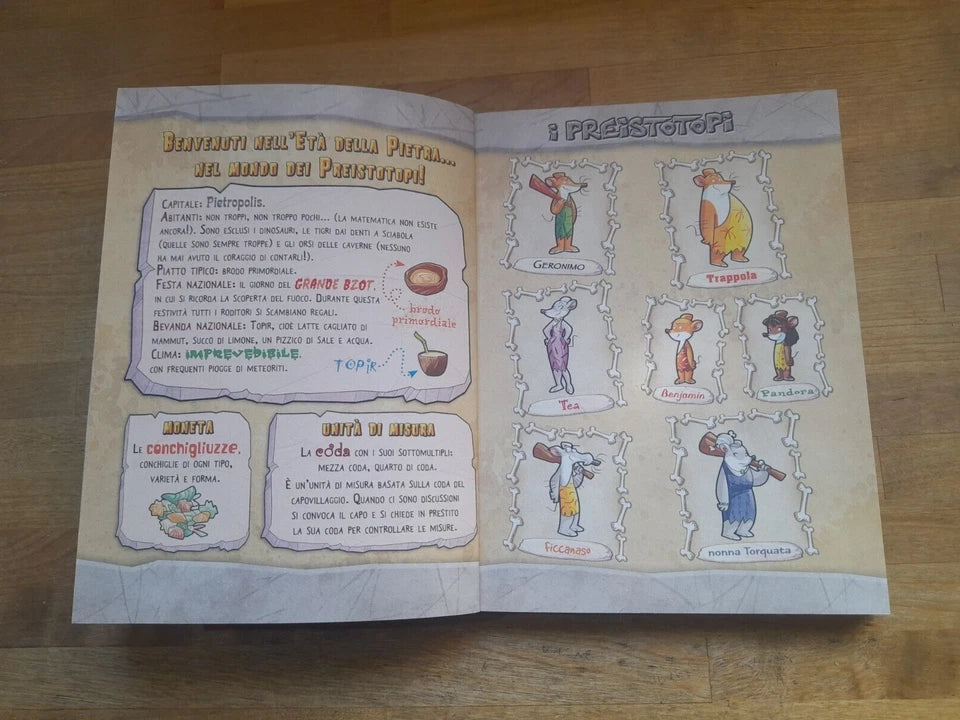 BENVENUTI NELL'ETÀ DELLA PIETRA...
NEL MONDO DEI PREISTOTOPI!
CAPITALE: Pietropolis.
ABITANTI: NON TROPPI, NON TROPPO POCHI... (LA MATEMATICA NON ESISTE
ANCORA!). SONO ESCLUSI I DINOSAURI, LE TIGRI DAI DENTI A SCIABOLA
(QUELLE SONO SEMPRE TROPPE) E GLI ORSI DELLE CAVERNE (NESSUNO
HA MAI AVUTO IL CORAGGIO DI CONTARLI!).
PIATTO TIPICO: BRODO PRIMORDIALE.
FESTA NAZIONALE: IL GIORNO DEL GRANDE BZOT,
IN CUI SI RICORDA LA SCOPERTA DEL FUOCO. DURANTE QUESTA
FESTIVITÀ TUTTI I RODITORI SI SCAMBIANO REGALI.
BEVANDA NAZIONALE: TOPIR, CIOÈ LATTE CAGLIATO DI
MAMMUT, SUCCO DI LIMONE, UN PIZZICO DI SALE E ACQUA.
CLIMA: IMPREVEDIBILE,
CON FREQUENTI PIOGGE DI METEORITI.
brodo
primordiale
TOPIR
MONETA
LE conchigliuzze,
CONCHIGLIE DI OGNI TIPO,
VARIETÀ E FORMA.
UNITÀ DI MISURA
LA coda CON I SUOI SOTTOMULTIPLI:
MEZZA CODA, QUARTO DI CODA.
È UN'UNITÀ DI MISURA BASATA SULLA CODA DEL
CAPOVILLAGGIO. QUANDO CI SONO DISCUSSIONI
SI CONVOCA IL CAPO E SI CHIEDE IN PRESTITO
LA SUA CODA PER CONTROLLARE LE MISURE.
i PREISTOTOPI
GERONIMO
Trappola
Tea
Benjamin
Pandora
ficcanaso
nonna Torquata